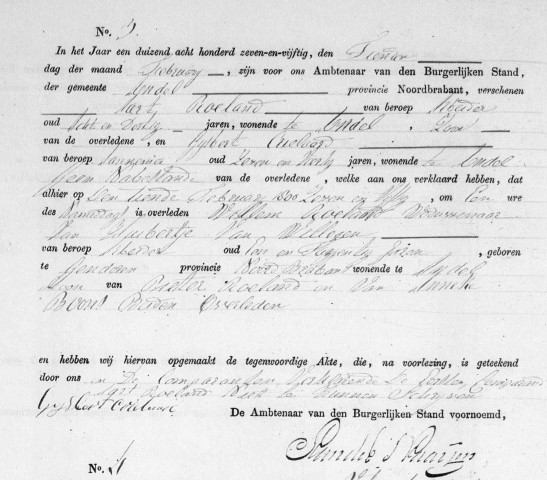 No. 3
In het Jaar een duizend acht honderd zeven-en-vijftig, den Tienden
dag der maand February, zijn voor ons Ambtenaar van den Burgerlijken Stand,
der gemeente Andel provincie Noordbrabant, verschenen
Roeland van beroep Arbeider
oud Acht en Dertig jaren, wonende te Andel Zoon
van de overledene, en Gijsbert
van beroep oud Zeven en Veertig jaren, wonende te Andel
van de overledene, welke aan ons verklaard hebben, dat
alhier op Den Tiende February 1800 Zeven en Vijftig, om Een ure
des Namiddags is overleden Willem Roeland Weduwenaar
Van Huibertje Van Willigen
van beroep Arbeider oud Een en Seventig Jaren, geboren
te Genderen provincie Noord Brabant wonende te Andel
Zoon van Pieter Roeland en Van
Beiden Overleden
en hebben wij hiervan opgemaakt de tegenwoordige Akte, die, na voorlezing, is geteekend
door ons en De Comparanten Verklarende De Eersten Comparant
Roeland Niet te Kunnen Schryven
Gijsbert
De Ambtenaar van den Burgerlijken Stand voornoemd,
No. 4